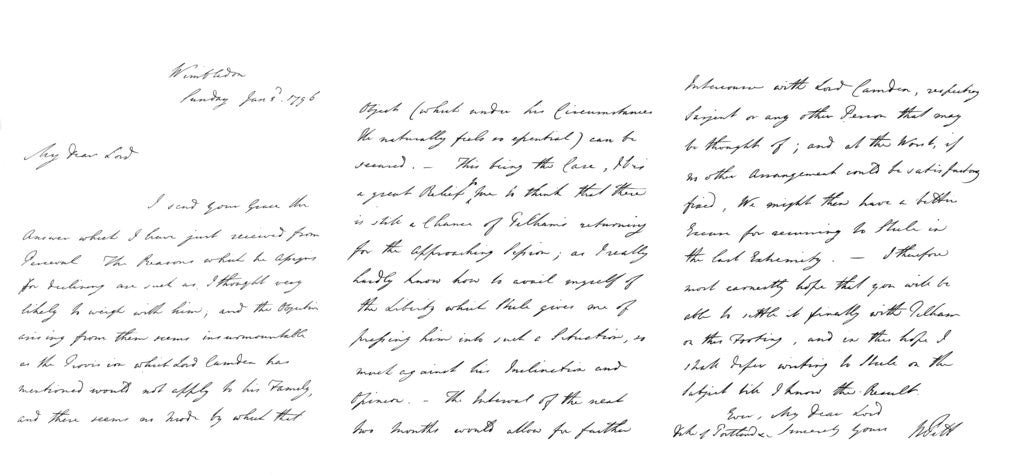 Wimbledon
Sunday Jan. 3. 1796
My Dear Lord
I send your Grace the
Answer which I have just received from
Perceval The Reasons which he assigns
for declining are such as I thought very
likely to weigh with him; and the Objection
arising from them seems insurmountable
as the Provision which Lord Camden has
mentioned would not apply to his Family,
and there seems no Mode by which that
Object (which under his Circumstances
He naturally feels so essential) can be
secured. – This being the Case, It is
a great Relief to me to think that there
is still a Chance of Pelham's returning
for the approaching Session; as I really
hardly know how to avail myself of
the Liberty which Steele gives me of
pressing him into such a Situation, so
much against his Inclination and
Opinion. – The Interval of the next
two months would allow for further
Intercourse with Lord Camden, respecting
Sargent or any other Person that may
be thought of; and at the Worst, if
no other Arrangement could be satisfactorily
fixed, We might then have a better
Excuse for recurring to Steele in
the last Extremity. – I therefore
most earnestly hope that you will be
able to settle it finally with Pelham
on this Footing, and in this hope I
shall defer writing to Steele on the
Subject till I know the Result.
Ever, My Dear Lord
Duke of Portland &c Sincerely Yours W Pitt